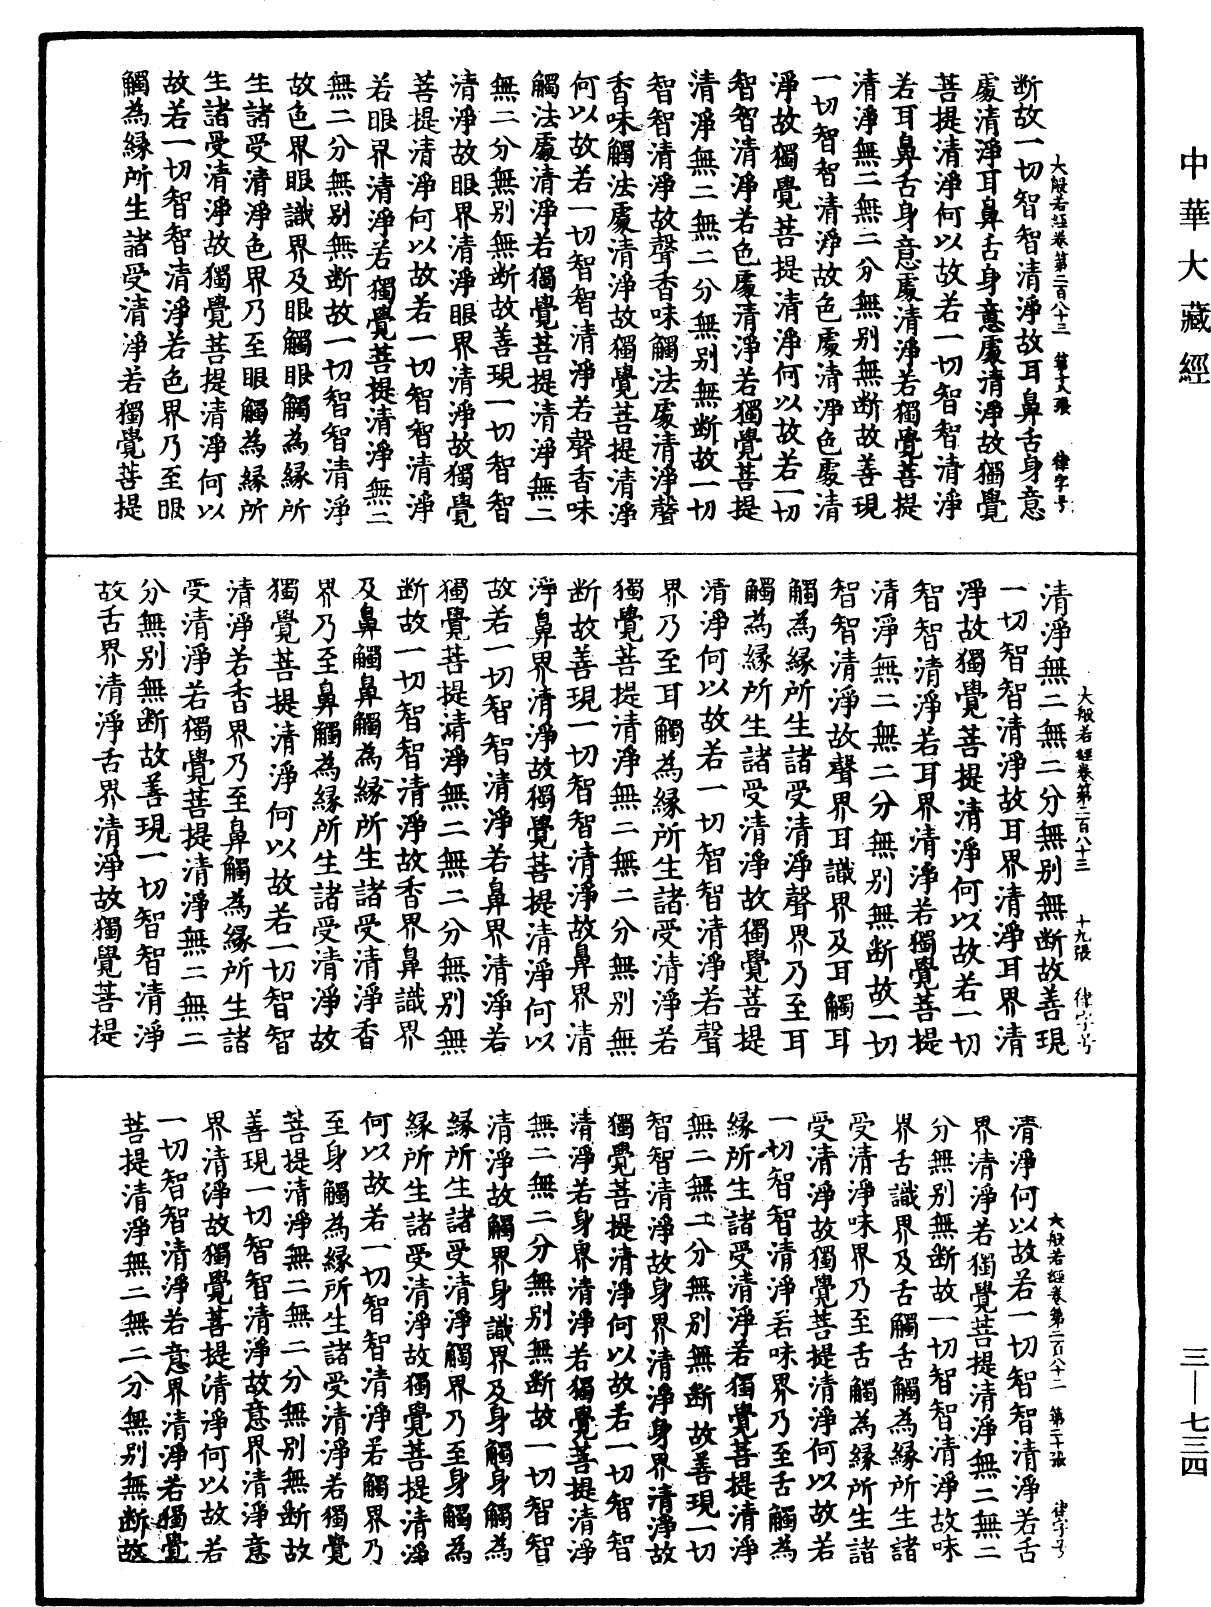 中華大藏經
三—七三四
大般若經卷第二百八十三 第十八張 律字号
断故一切智智清淨故耳鼻舌身意
處清淨耳鼻舌身意處清淨故獨覺
菩提清淨何以故若一切智智清淨
若耳鼻舌身意處清淨若獨覺菩提
清淨無二無二分無别無断故善現
一切智智清淨故色處清淨色處清
淨故獨覺菩提清淨何以故若一切
智智清淨若色處清淨若獨覺菩提
清淨無二無二分無别無断故一切
智智清淨故聲香味觸法處清淨聲
香味觸法處清淨故獨覺菩提清淨
何以故若一切智智清淨若聲香味
觸法處清淨若獨覺菩提清淨無二
無二分無别無断故善現一切智智
清淨故眼界清淨眼界清淨故獨覺
菩提清淨何以故若一切智智清淨
若眼界清淨若獨覺菩提清淨無二
無二分無别無断故一切智智清淨
故色界眼識界及眼觸眼觸為緣所
生諸受清淨色界乃至眼觸為緣所
生諸受清淨故獨覺菩提清淨何以
故若一切智智清淨若色界乃至眼
觸為緣所生諸受清淨若獨覺菩提
大般若經卷第二百八十三 十九張 律字号
清淨無二無二分無别無断故善現
一切智智清淨故耳界清淨耳界清
淨故獨覺菩提清淨何以故若一切
智智清淨若耳界清淨若獨覺菩提
清淨無二無二分無别無断故一切
智智清淨故聲界耳識界及耳觸耳
觸為緣所生諸受清淨聲界乃至耳
觸為緣所生諸受清淨故獨覺菩提
清淨何以故若一切智智清淨若聲
界乃至耳觸為緣所生諸受清淨若
獨覺菩提清淨無二無二分無别無
断故善現一切智智清淨故鼻界清
淨鼻界清淨故獨覺菩提清淨何以
故若一切智智清淨若鼻界清淨若
獨覺菩提清淨無二無二分無别無
断故一切智智清淨故香界鼻識界
及鼻觸鼻觸為緣所生諸受清淨香
界乃至鼻觸為緣所生諸受清淨故
獨覺菩提清淨何以故若一切智智
清淨若香界乃至鼻觸為緣所生諸
受清淨若獨覺菩提清淨無二無二
分無别無断故善現一切智智清淨
故舌界清淨舌界清淨故獨覺菩提
大般若經卷第二百八十二 第二十張 律字号
清淨何以故若一切智智清淨若舌
界清淨若獨覺菩提清淨無二無二
分無别無断故一切智智清淨故味
界舌識界及舌觸舌觸為緣所生諸
受清淨味界乃至舌觸為緣所生諸
受清淨故獨覺菩提清淨何以故若
一切智智清淨若味界乃至舌觸為
緣所生諸受清淨若獨覺菩提清淨
無二無二分無别無断故善現一切
智智清淨故身界清淨身界清淨故
獨覺菩提清淨何以故若一切智智
清淨若身界清淨若獨覺菩提清淨
無二無二分無别無断故一切智智
清淨故觸界身識界及身觸身觸為
緣所生諸受清淨觸界乃至身觸為
緣所生諸受清淨故獨覺菩提清淨
何以故若一切智智清淨若觸界乃
至身觸為緣所生諸受清淨若獨覺
菩提清淨無二無二分無别無断故
善現一切智智清淨故意界清淨意
界清淨故獨覺菩提清淨何以故若
一切智智清淨若意界清淨若獨覺
菩提清淨無二無二分無别無断故